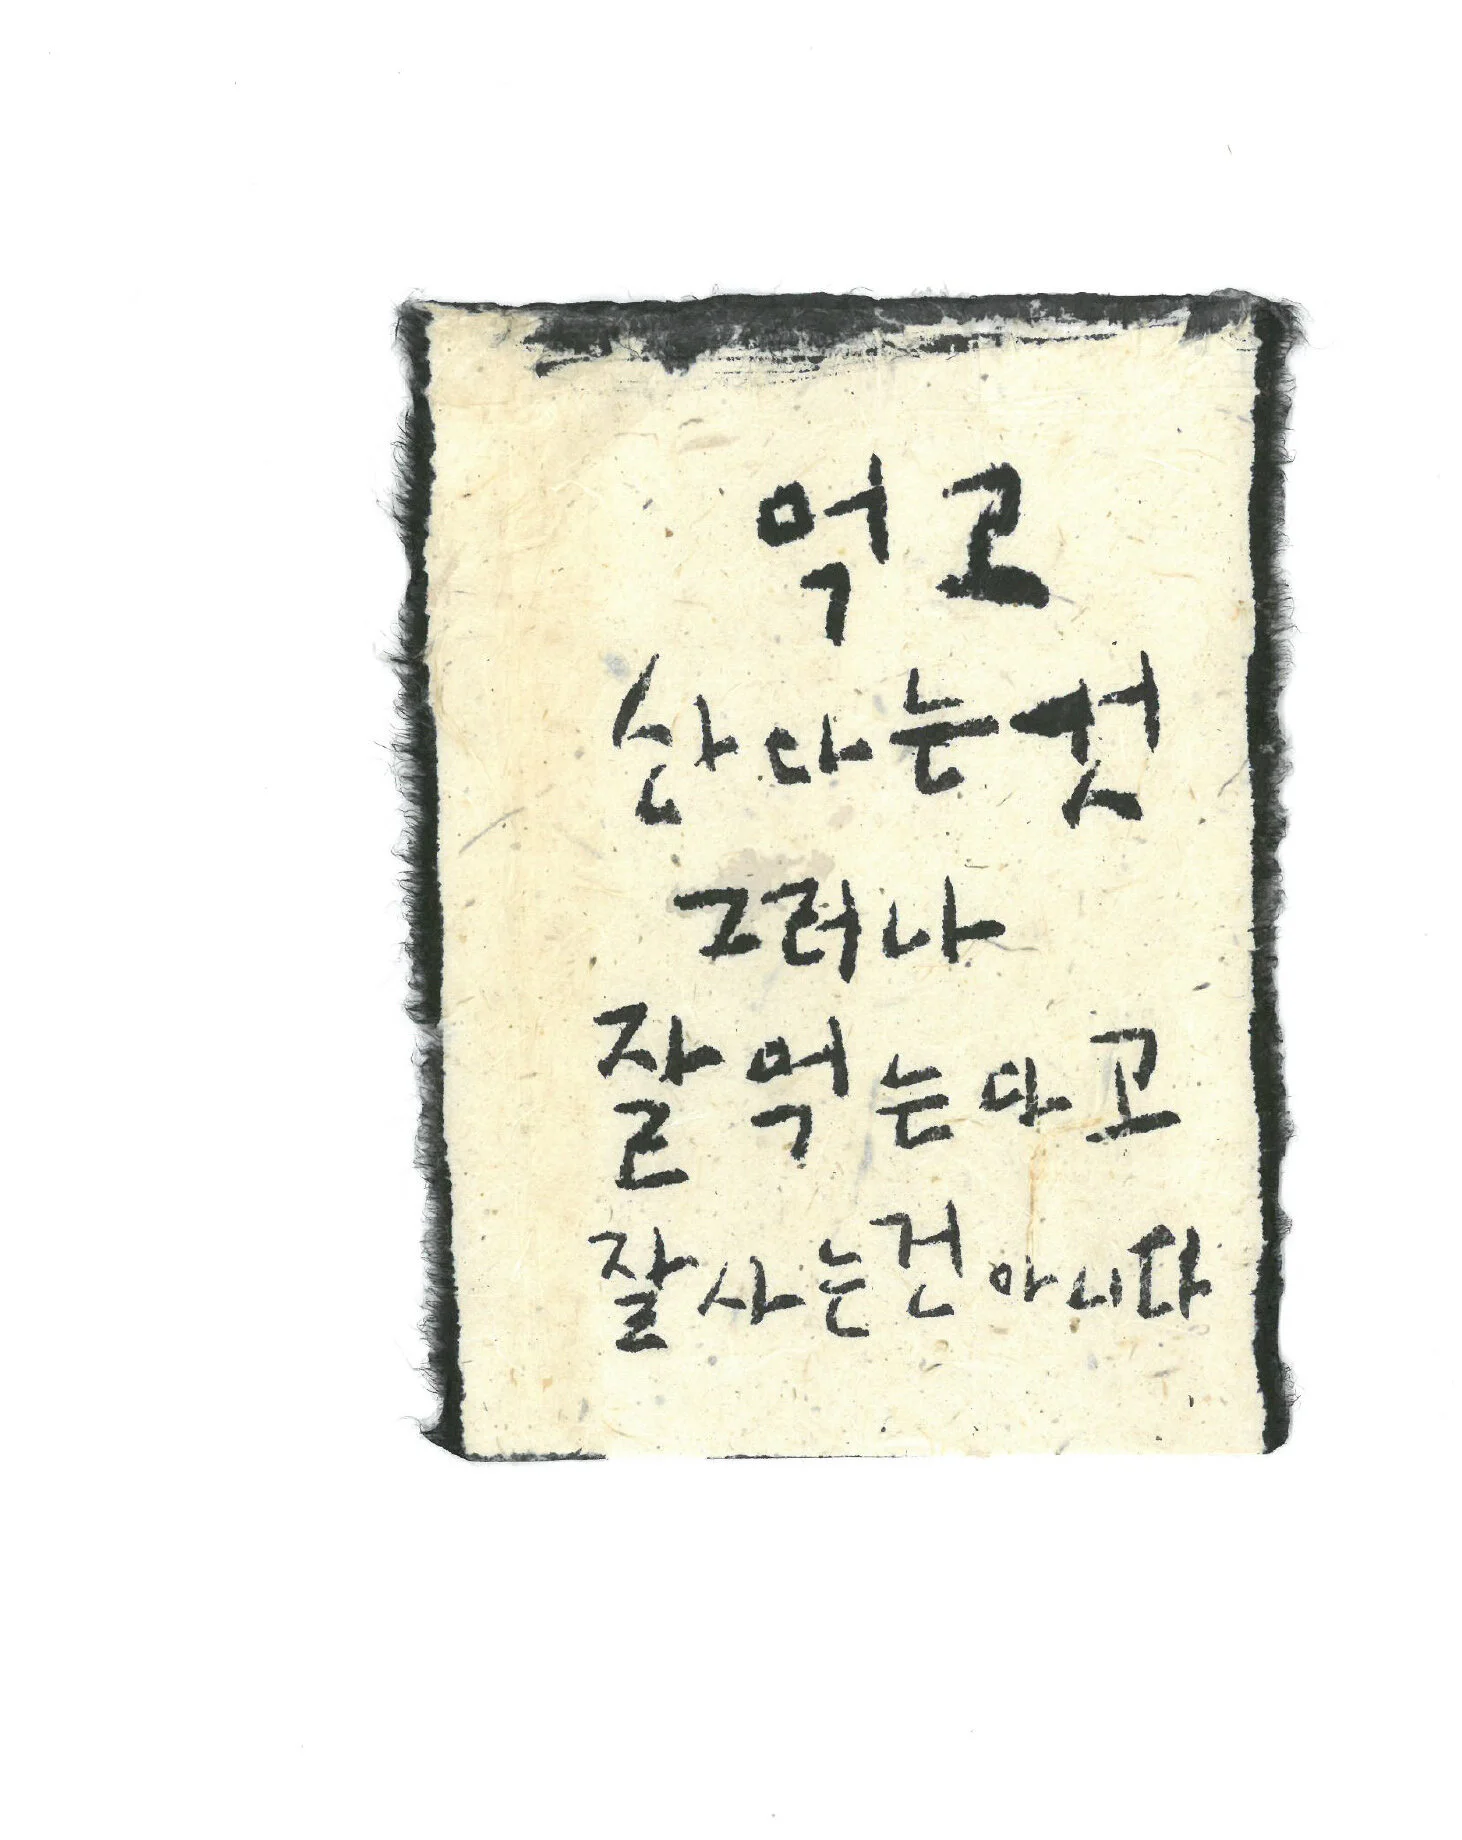 먹고
산다는것
그러나
잘먹는다고
잘사는건아니다